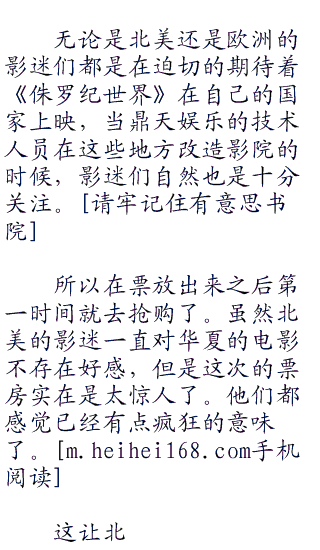 无论是北美还是欧洲的
影迷们都是在迫切的期待着
《侏罗纪世界》在自己的国
家上映，当鼎天娱乐的技术
人员在这些地方改造影院的
时候，影迷们自然也是十分
关注。[请牢记住有意思书
院]
所以在票放出来之后第
一时间就去抢购了。虽然北
美的影迷一直对华夏的电影
不存在好感，但是这次的票
房实在是太惊人了。他们都
感觉已经有点疯狂的意味
了。[m.heihei168.com手机
阅读]
这让北